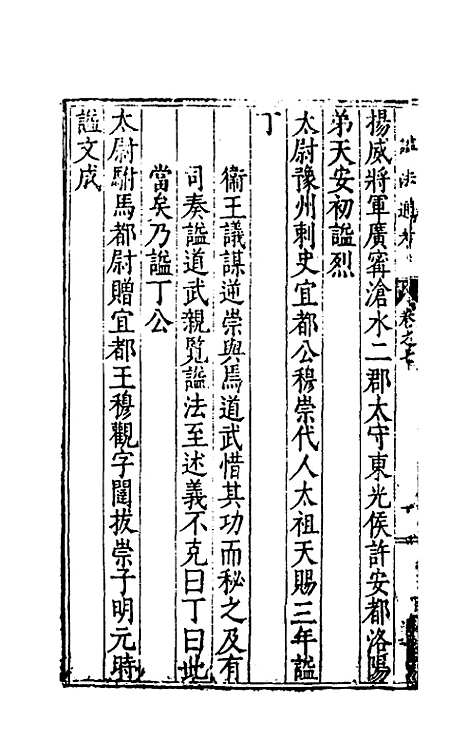 諡法通考 卷之七
揚威將軍廣甯滄水二郡太守東光侯許安都洛陽
弟天安初諡烈
太尉豫州刺史宜都公穆崇代人太祖天賜三年諡
丁
衞王議謀逆崇與焉道武惜其功而秘之及有
司奏諡道武親覧諡法至述義不克曰丁曰此
當矣乃諡丁公
太尉駙馬都尉贈宜都王穆觀字闥拔崇子明元時
諡文成